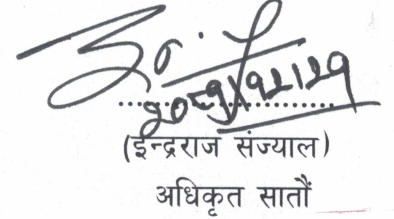 २०८१/१२/२१
(ईन्द्रराज संज्याल)
अधिकृत सातौं